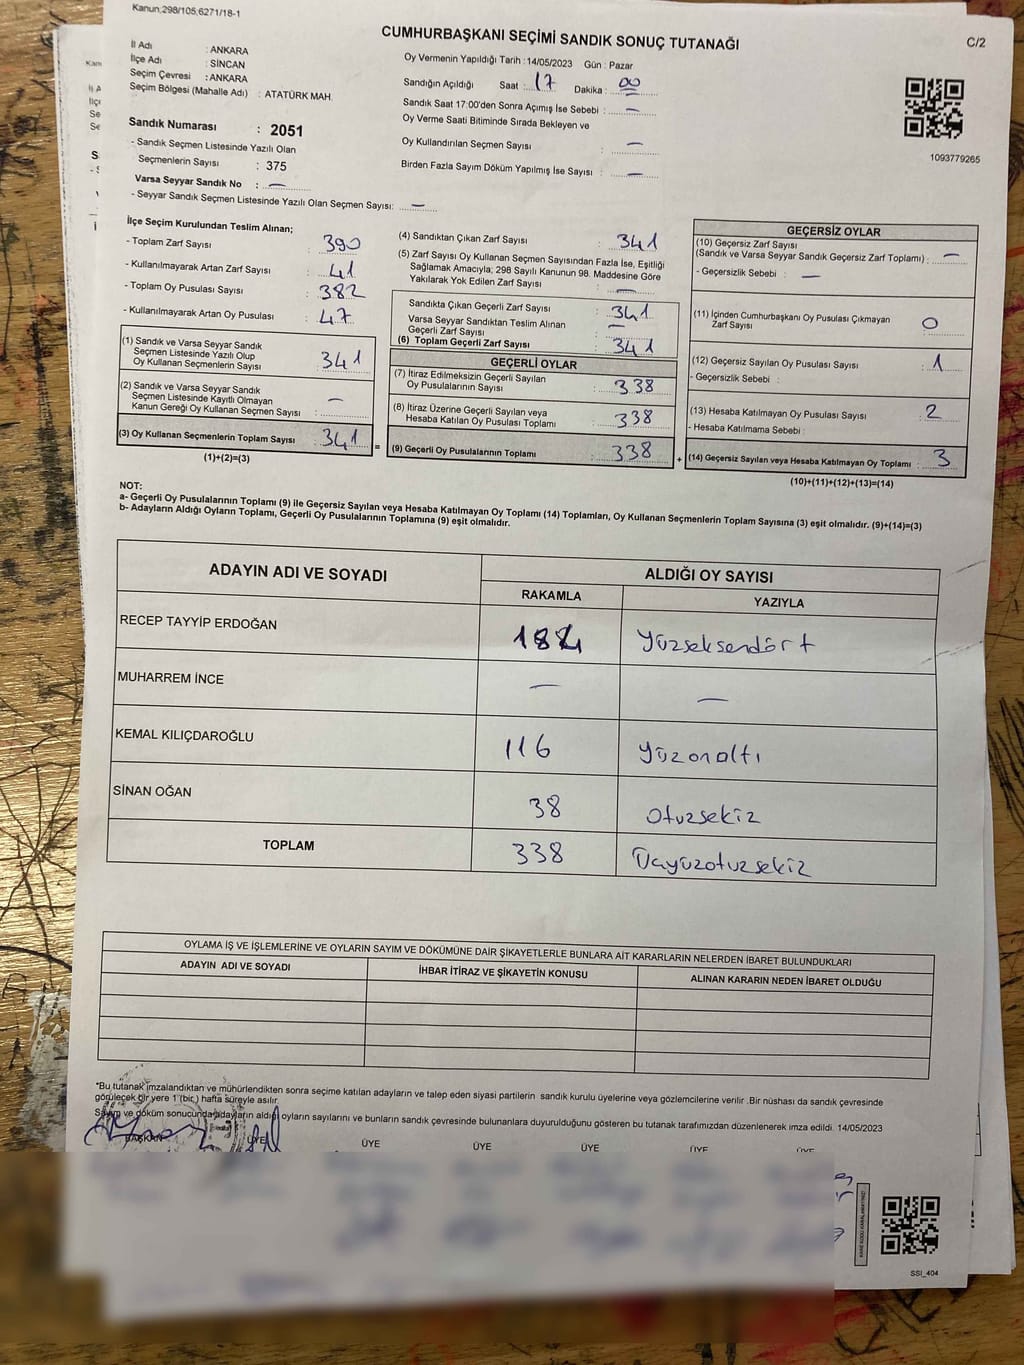 Kanun,298/105,6271/18-1
CUMHURBAŞKANI SEÇİMİ SANDIK SONUÇ TUTANAĞI
C/2
İl Adı : ANKARA
İlçe Adı : SİNCAN
Seçim Çevresi : ANKARA
Seçim Bölgesi (Mahalle Adı) : ATATÜRK MAH.
Sandık Numarası : 2051
- Sandık Seçmen Listesinde Yazılı Olan
Seçmenlerin Sayısı : 375
Varsa Seyyar Sandık No : —
- Seyyar Sandık Seçmen Listesinde Yazılı Olan Seçmen Sayısı: —
Oy Vermenin Yapıldığı Tarih : 14/05/2023 Gün : Pazar
Sandığın Açıldığı Saat : 17 Dakika : 00
Sandık Saat 17:00'den Sonra Açımış İse Sebebi : —
Oy Verme Saati Bitiminde Sırada Bekleyen ve
Oy Kullandırılan Seçmen Sayısı : —
Birden Fazla Sayım Döküm Yapılmış İse Sayısı : —
1093779265
İlçe Seçim Kurulundan Teslim Alınan;
- Toplam Zarf Sayısı : 390
- Kullanılmayarak Artan Zarf Sayısı : 41
- Toplam Oy Pusulası Sayısı : 382
- Kullanılmayarak Artan Oy Pusulası : 47
(1) Sandık ve Varsa Seyyar Sandık
Seçmen Listesinde Yazılı Olup
Oy Kullanan Seçmenlerin Sayısı : 341
(2) Sandık ve Varsa Seyyar Sandık
Seçmen Listesinde Kayıtlı Olmayan
Kanun Gereği Oy Kullanan Seçmen Sayısı : —
(3) Oy Kullanan Seçmenlerin Toplam Sayısı : 341 =
(1)+(2)=(3)
(4) Sandıktan Çıkan Zarf Sayısı : 341
(5) Zarf Sayısı Oy Kullanan Seçmen Sayısından Fazla İse, Eşitliği
Sağlamak Amacıyla; 298 Sayılı Kanunun 98. Maddesine Göre
Yakılarak Yok Edilen Zarf Sayısı : —
Sandıkta Çıkan Geçerli Zarf Sayısı : 341
Varsa Seyyar Sandıktan Teslim Alınan
Geçerli Zarf Sayısı : —
(6) Toplam Geçerli Zarf Sayısı : 341
GEÇERLİ OYLAR
(7) İtiraz Edilmeksizin Geçerli Sayılan
Oy Pusulalarının Sayısı : 338
(8) İtiraz Üzerine Geçerli Sayılan veya
Hesaba Katılan Oy Pusulası Toplamı : 338
(9) Geçerli Oy Pusulalarının Toplamı : 338 +
GEÇERSİZ OYLAR
(10) Geçersiz Zarf Sayısı
(Sandık ve Varsa Seyyar Sandık Geçersiz Zarf Toplamı) : —
- Geçersizlik Sebebi : —
(11) İçinden Cumhurbaşkanı Oy Pusulası Çıkmayan
Zarf Sayısı : 0
(12) Geçersiz Sayılan Oy Pusulası Sayısı : 1
- Geçersizlik Sebebi :
(13) Hesaba Katılmayan Oy Pusulası Sayısı : 2
- Hesaba Katılmama Sebebi :
(14) Geçersiz Sayılan veya Hesaba Katılmayan Oy Toplamı : 3
(10)+(11)+(12)+(13)=(14)
NOT:
a- Geçerli Oy Pusulalarının Toplamı (9) ile Geçersiz Sayılan veya Hesaba Katılmayan Oy Toplamı (14) Toplamları, Oy Kullanan Seçmenlerin Toplam Sayısına (3) eşit olmalıdır. (9)+(14)=(3)
b- Adayların Aldığı Oyların Toplamı, Geçerli Oy Pusulalarının Toplamına (9) eşit olmalıdır.
ADAYIN ADI VE SOYADI ALDIĞI OY SAYISI
RAKAMLA YAZIYLA
RECEP TAYYİP ERDOĞAN 184 Yüzseksendört
MUHARREM İNCE — —
KEMAL KILIÇDAROĞLU 116 Yüzonaltı
SİNAN OĞAN 38 Otuzsekiz
TOPLAM 338 Üçyüzotuzsekiz
OYLAMA İŞ VE İŞLEMLERİNE VE OYLARIN SAYIM VE DÖKÜMÜNE DAİR ŞİKAYETLERLE BUNLARA AİT KARARLARIN NELERDEN İBARET BULUNDUKLARI
ADAYIN ADI VE SOYADI İHBAR İTİRAZ VE ŞİKAYETİN KONUSU ALINAN KARARIN NEDEN İBARET OLDUĞU
*Bu tutanak imzalandıktan ve mühürlendikten sonra seçime katılan adayların ve talep eden siyasi partilerin sandık kurulu üyelerine veya gözlemcilerine verilir .Bir nüshası da sandık çevresinde
görülecek bir yere 1 (bir ) hafta süreyle asılır.
Sayım ve döküm sonucunda adayların aldığı oyların sayılarını ve bunların sandık çevresinde bulunanlara duyurulduğunu gösteren bu tutanak tarafımızdan düzenlenerek imza edildi. 14/05/2023
BAŞKAN ÜYE ÜYE ÜYE ÜYE ÜYE ÜYE
KARE KODU KARALAMAYINIZ!
SSİ_404